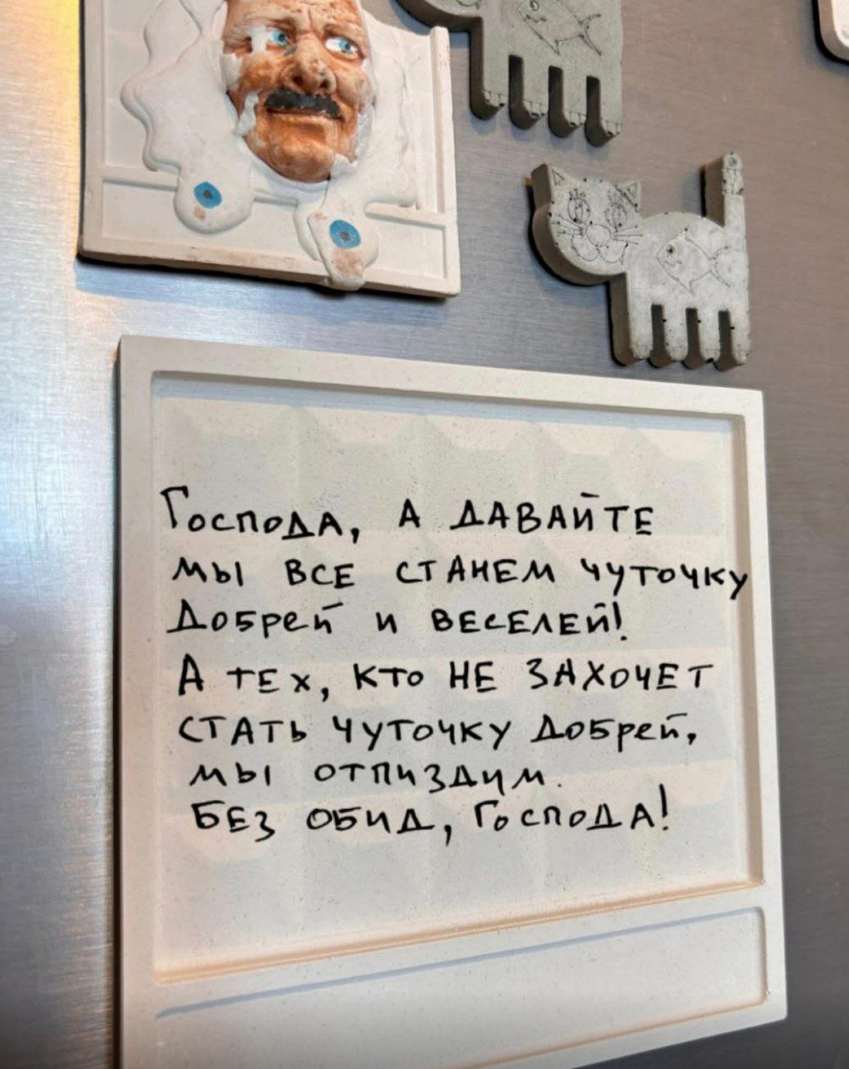 Господа, а давайте
мы все станем чуточку
добрей и веселей!
А тех, кто не захочет
стать чуточку добрей,
мы отпиздим.
Без обид, господа!